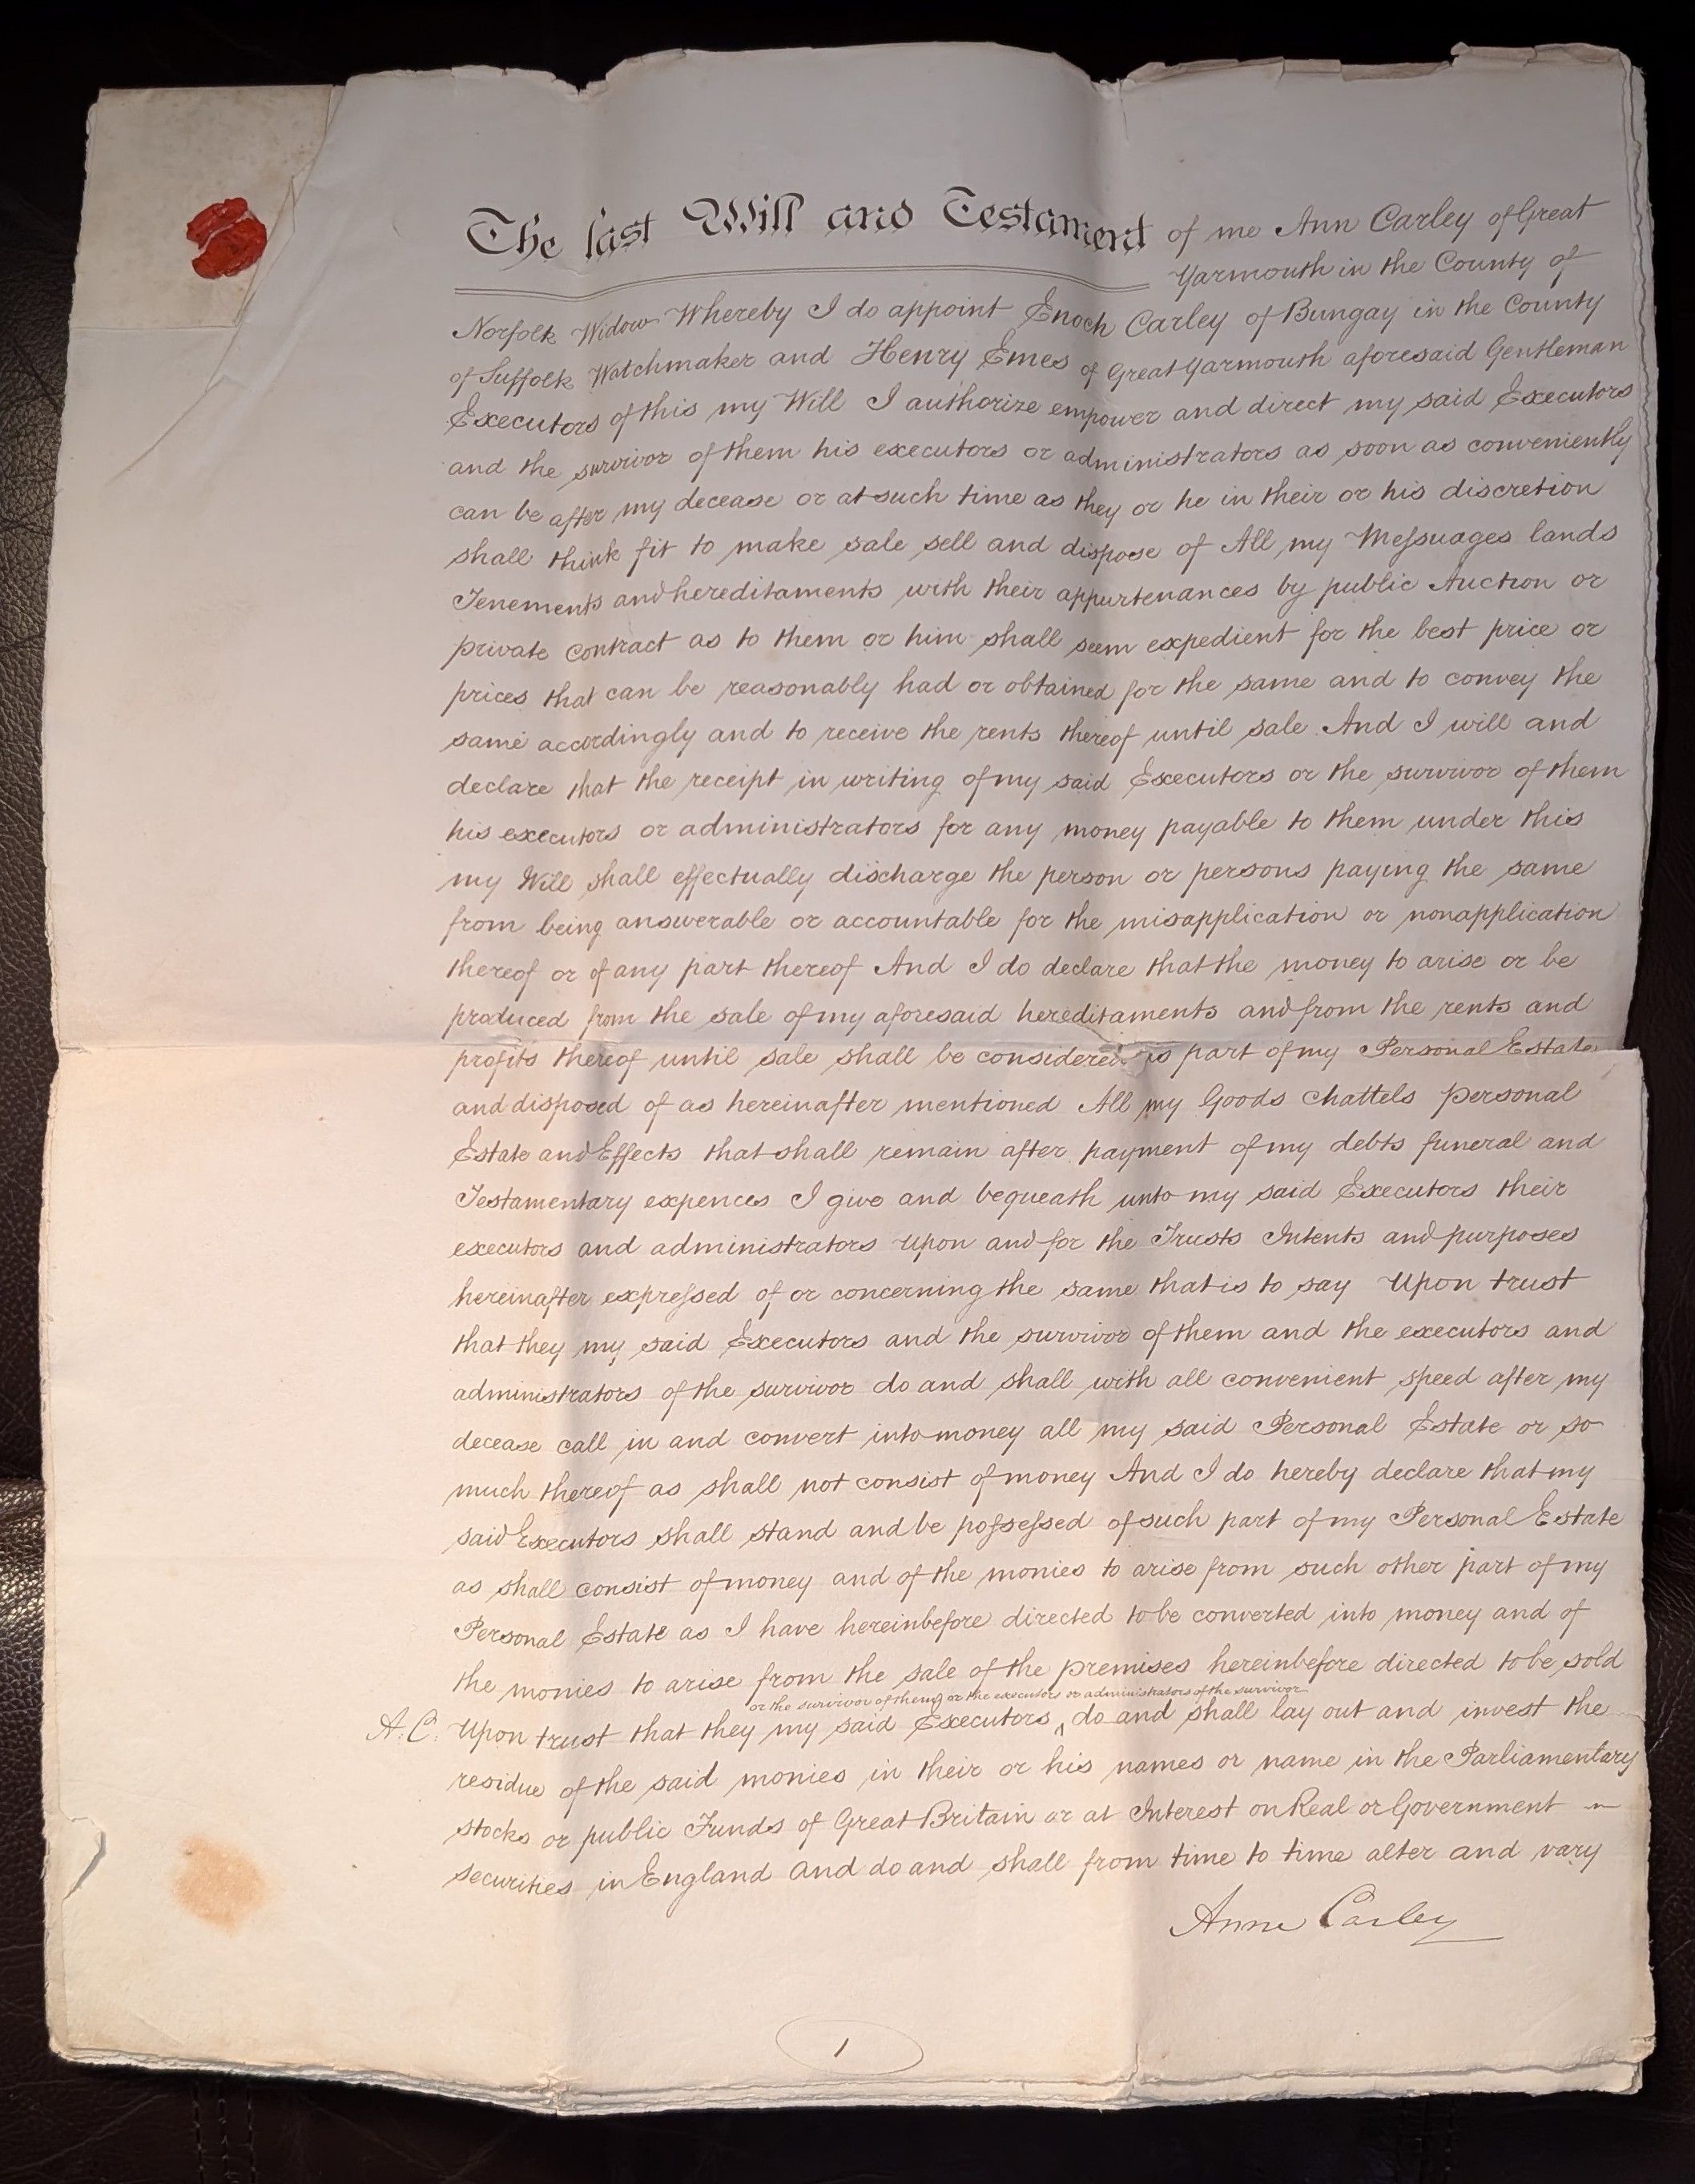 The last Will and Testament of me Ann Carley of Great
Yarmouth in the County of
Norfolk Widow Whereby I do appoint Enoch Carley of Bungay in the County
of Suffolk Watchmaker and Henry Emes of Great Yarmouth aforesaid Gentleman
Executors of this my Will I authorize empower and direct my said Executors
and the survivor of them his executors or administrators as soon as conveniently
can be after my decease or at such time as they or he in their or his discretion
shall think fit to make sale sell and dispose of All my Meſsuages lands
Tenements and hereditaments with their appurtenances by public Auction or
private contract as to them or him shall seem expedient for the best price or
prices that can be reasonably had or obtained for the same and to convey the
same accordingly and to receive the rents thereof until sale And I will and
declare that the receipt in writing of my said Executors or the survivor of them
his executors or administrators for any money payable to them under this
my Will shall effectually discharge the person or persons paying the same
from being answerable or accountable for the misapplication or nonapplication
thereof or of any part thereof And I do declare that the money to arise or be
produced from the sale of my aforesaid hereditaments and from the rents and
profits thereof until sale shall be considered as part of my Personal Estate
and disposed of as hereinafter mentioned All my Goods Chattels personal
Estate and Effects that shall remain after payment of my debts funeral and
Testamentary expences I give and bequeath unto my said Executors their
executors and administrators Upon and for the Trusts Intents and purposes
hereinafter expreſsed of or concerning the same that is to say Upon trust
that they my said Executors and the survivor of them and the executors and
administrators of the survivor do and shall with all convenient speed after my
decease call in and convert into money all my said Personal Estate or so
much thereof as shall not consist of money And I do hereby declare that my
said Executors shall stand and be poſseſsed of such part of my Personal Estate
as shall consist of money and of the monies to arise from such other part of my
Personal Estate as I have hereinbefore directed to be converted into money and of
the monies to arise from the sale of the premises hereinbefore directed to be sold
or the survivor of them or the executors or administrators of the survivor
A.C. Upon trust that they my said Executors ‸ do and shall lay out and invest the
residue of the said monies in their or his names or name in the Parliamentary
stocks or public Funds of Great Britain or at Interest on Real or Government
securities in England and do and shall from time to time alter and vary
Anne Carley
1